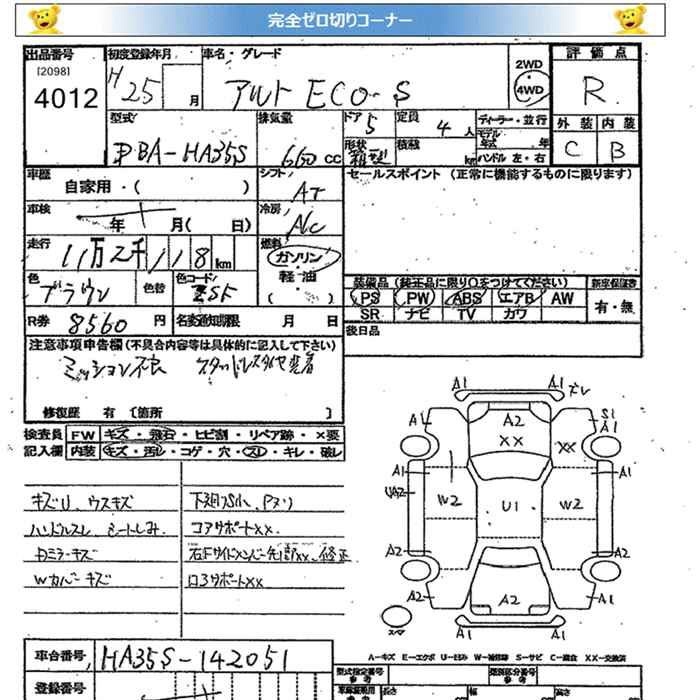 完全ゼロ切りコーナー
出品番号 初度登録年月 車名・グレード 評価点
[2098] 4012
H25 月
アルト ECO-S
2WD
4WD
R
外装 内装
C B
型式 排気量 ドア 定員 ディーラー・並行
DBA-HA35S 660cc 5 4人
モデル年式 年
形状 箱型 積載 kg ハンドル 左・右
車歴 シフト セールスポイント (正常に機能するものに限ります)
自家用・( ) AT
車検 冷房
年 月( 日) A/C
走行 燃料
11万2千118km ガソリン
軽・油
( )
色 色替 色コード
ブラウン ZSF
装備品 (純正品に限り○をつけてください) 新車保証書
PS PW ABS エアB AW 有・無
SR ナビ TV カワ
R券 8560円 名変通知期限 月 日
後日品
注意事項申告欄 (不具合内容等は具体的に記入して下さい)
ミッション不良 スタッドレスタイヤ装着
修復歴 有 〔箇所 〕
検査員 FW キズ・飛石・ヒビ割・リペア跡・×要
記入欄 内装 キズ・汚レ・コゲ・穴・スレ・キレ・破レ
キズU、ウスキズ
ハンドルスレ シートしみ
Dミラーキズ
Wカバーキズ
下廻りS小、Pヌリ
コアサポートXX
右Fサイドメンバー先部XX、修正
ロアサポートXX
A1 A1
A2
XX
A1 S1
A1
XX
A1 A1
UA2
W2 U1 W2
A2 A2
A2 A2 A1
A1 A1
スペア
A-キズ E-エクボ U-凹み W-補修跡 S-サビ C-腐食 XX-交換済
車台番号 HA35S-142051
登録番号
型式指定番号 参考 類別区分番号 参考
長さ 幅 高さ